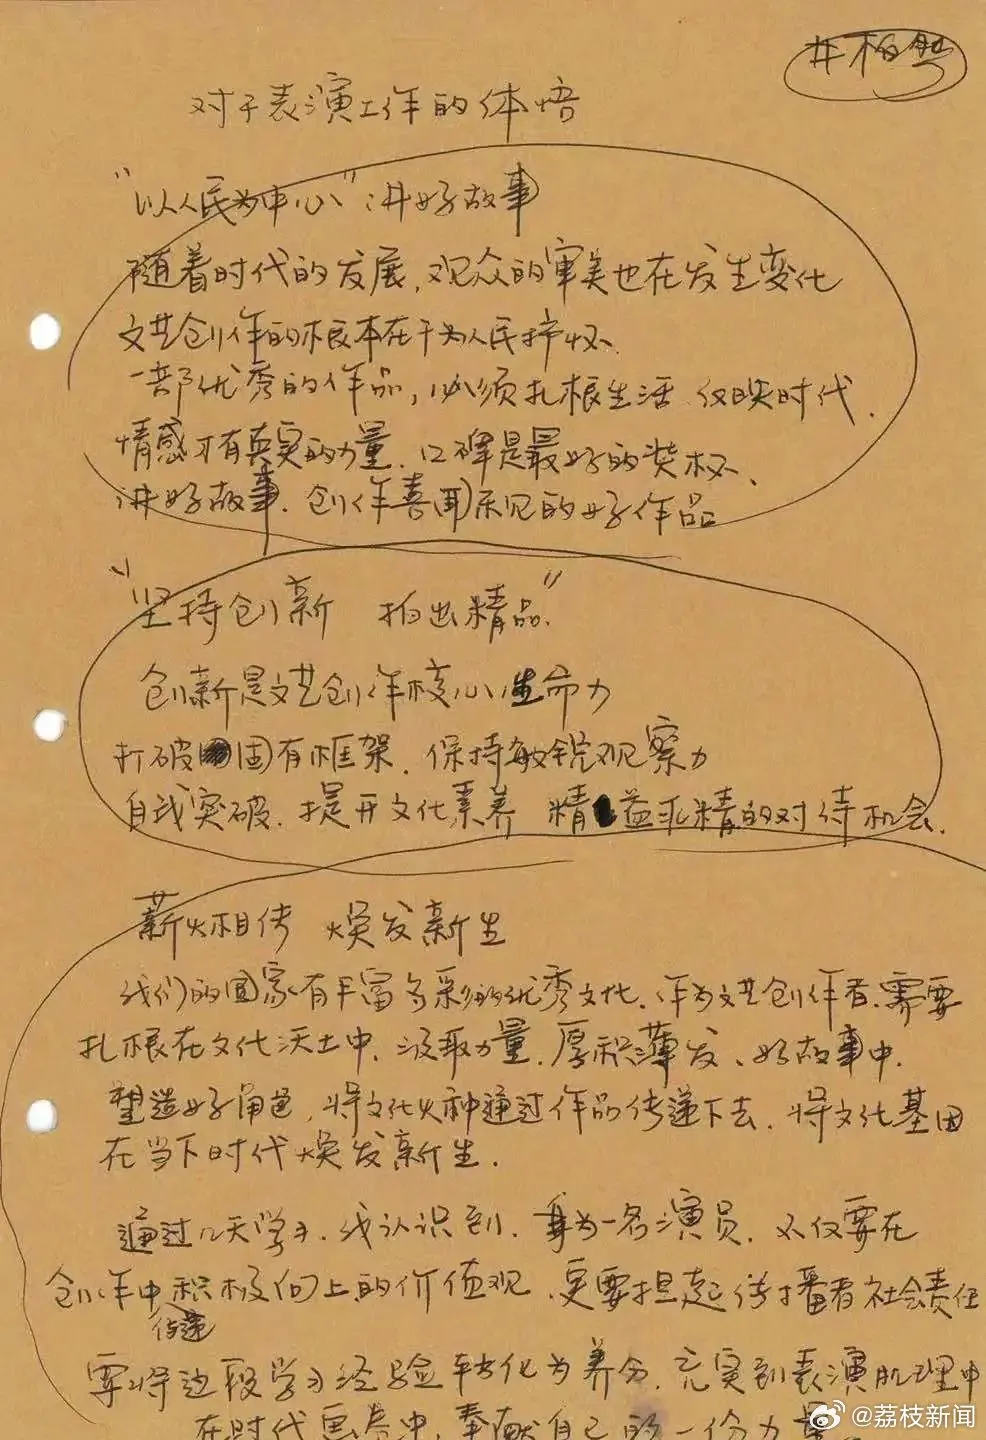 井柏然
对于表演工作的体悟
"以人民为中心"讲好故事
随着时代的发展,观众的审美也在发生变化
文艺创作的根本在于为人民抒怀、
一部优秀的作品,必须扎根生活 反映时代.
情感才有真实的力量.口碑是最好的奖杯、
讲好故事.创作喜闻乐见的好作品
"坚持创新 拍出精品"
创新是文艺创作核心生命力
打破固有框架.保持敏锐观察力
自我突破.提升文化素养 精益求精的对待机会.
薪火相传 焕发新生
我们的国家有丰富多彩的优秀文化、作为文艺创作者.需要
扎根在文化沃土中.汲取力量.厚积薄发、好故事中.
塑造好角色,将文化火种通过作品传递下去.将文化基因
在当下时代焕发新生.
通过几天学习.我认识到.身为一名演员.不仅要在
创作中传递积极向上的价值观.更要担起传播者社会责任
要将这段学习经验转化为养分.充实到表演肌理中
在时代画卷中.奉献自己的一份力量。
@荔枝新闻